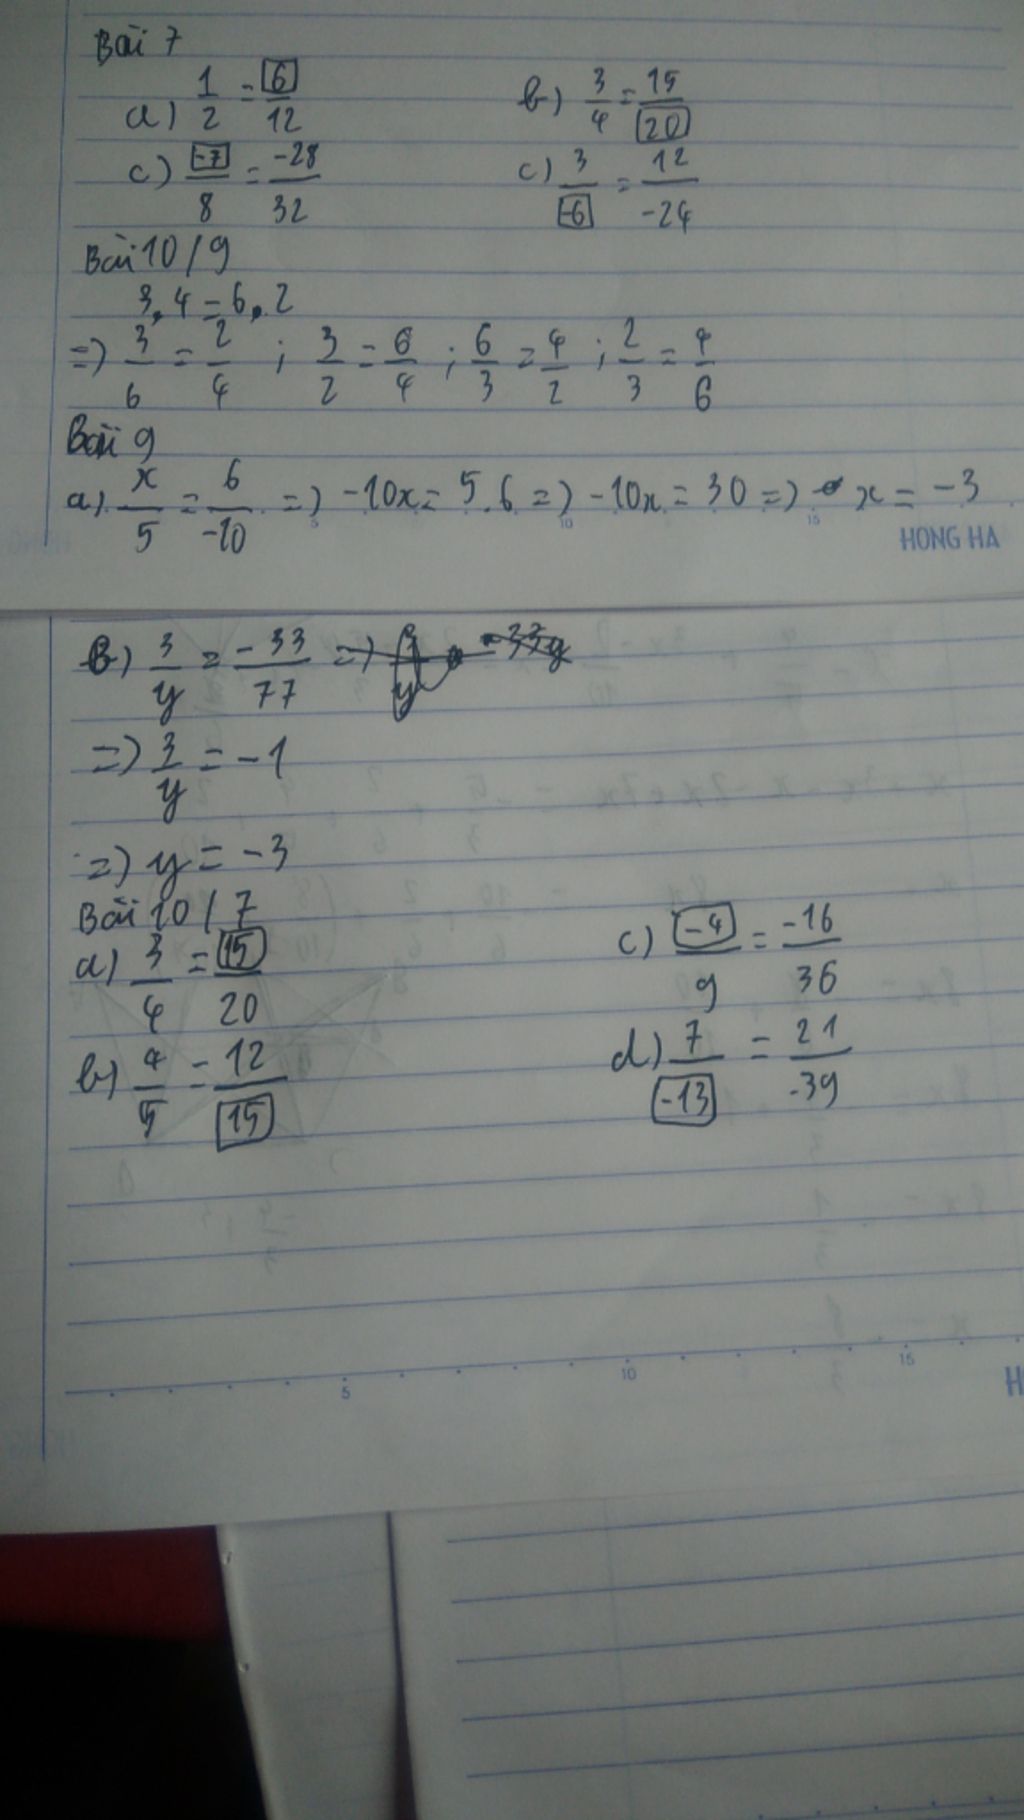 Bài 7
a) 1/2 = 6/12 b) 3/4 = 15/20
c) -7/8 = -28/32 c) 3/-6 = 12/-24
Bài 10/9
3.4 = 6.2
=> 3/6 = 2/4 ; 3/2 = 6/4 ; 6/3 = 4/2 ; 2/3 = 4/6
Bài 9
a) x/5 = 6/-10 => -10x = 5.6 => -10x = 30 => x = -3
5 10 15
HONG HA
b) 3/y = -33/77
=> 3/y = -1
=> y = -3
Bài 10/7
a) 3/4 = 15/20 c) -4/9 = -16/36
b) 4/5 = 12/15 d) 7/-13 = 21/-39
5 10 15
H